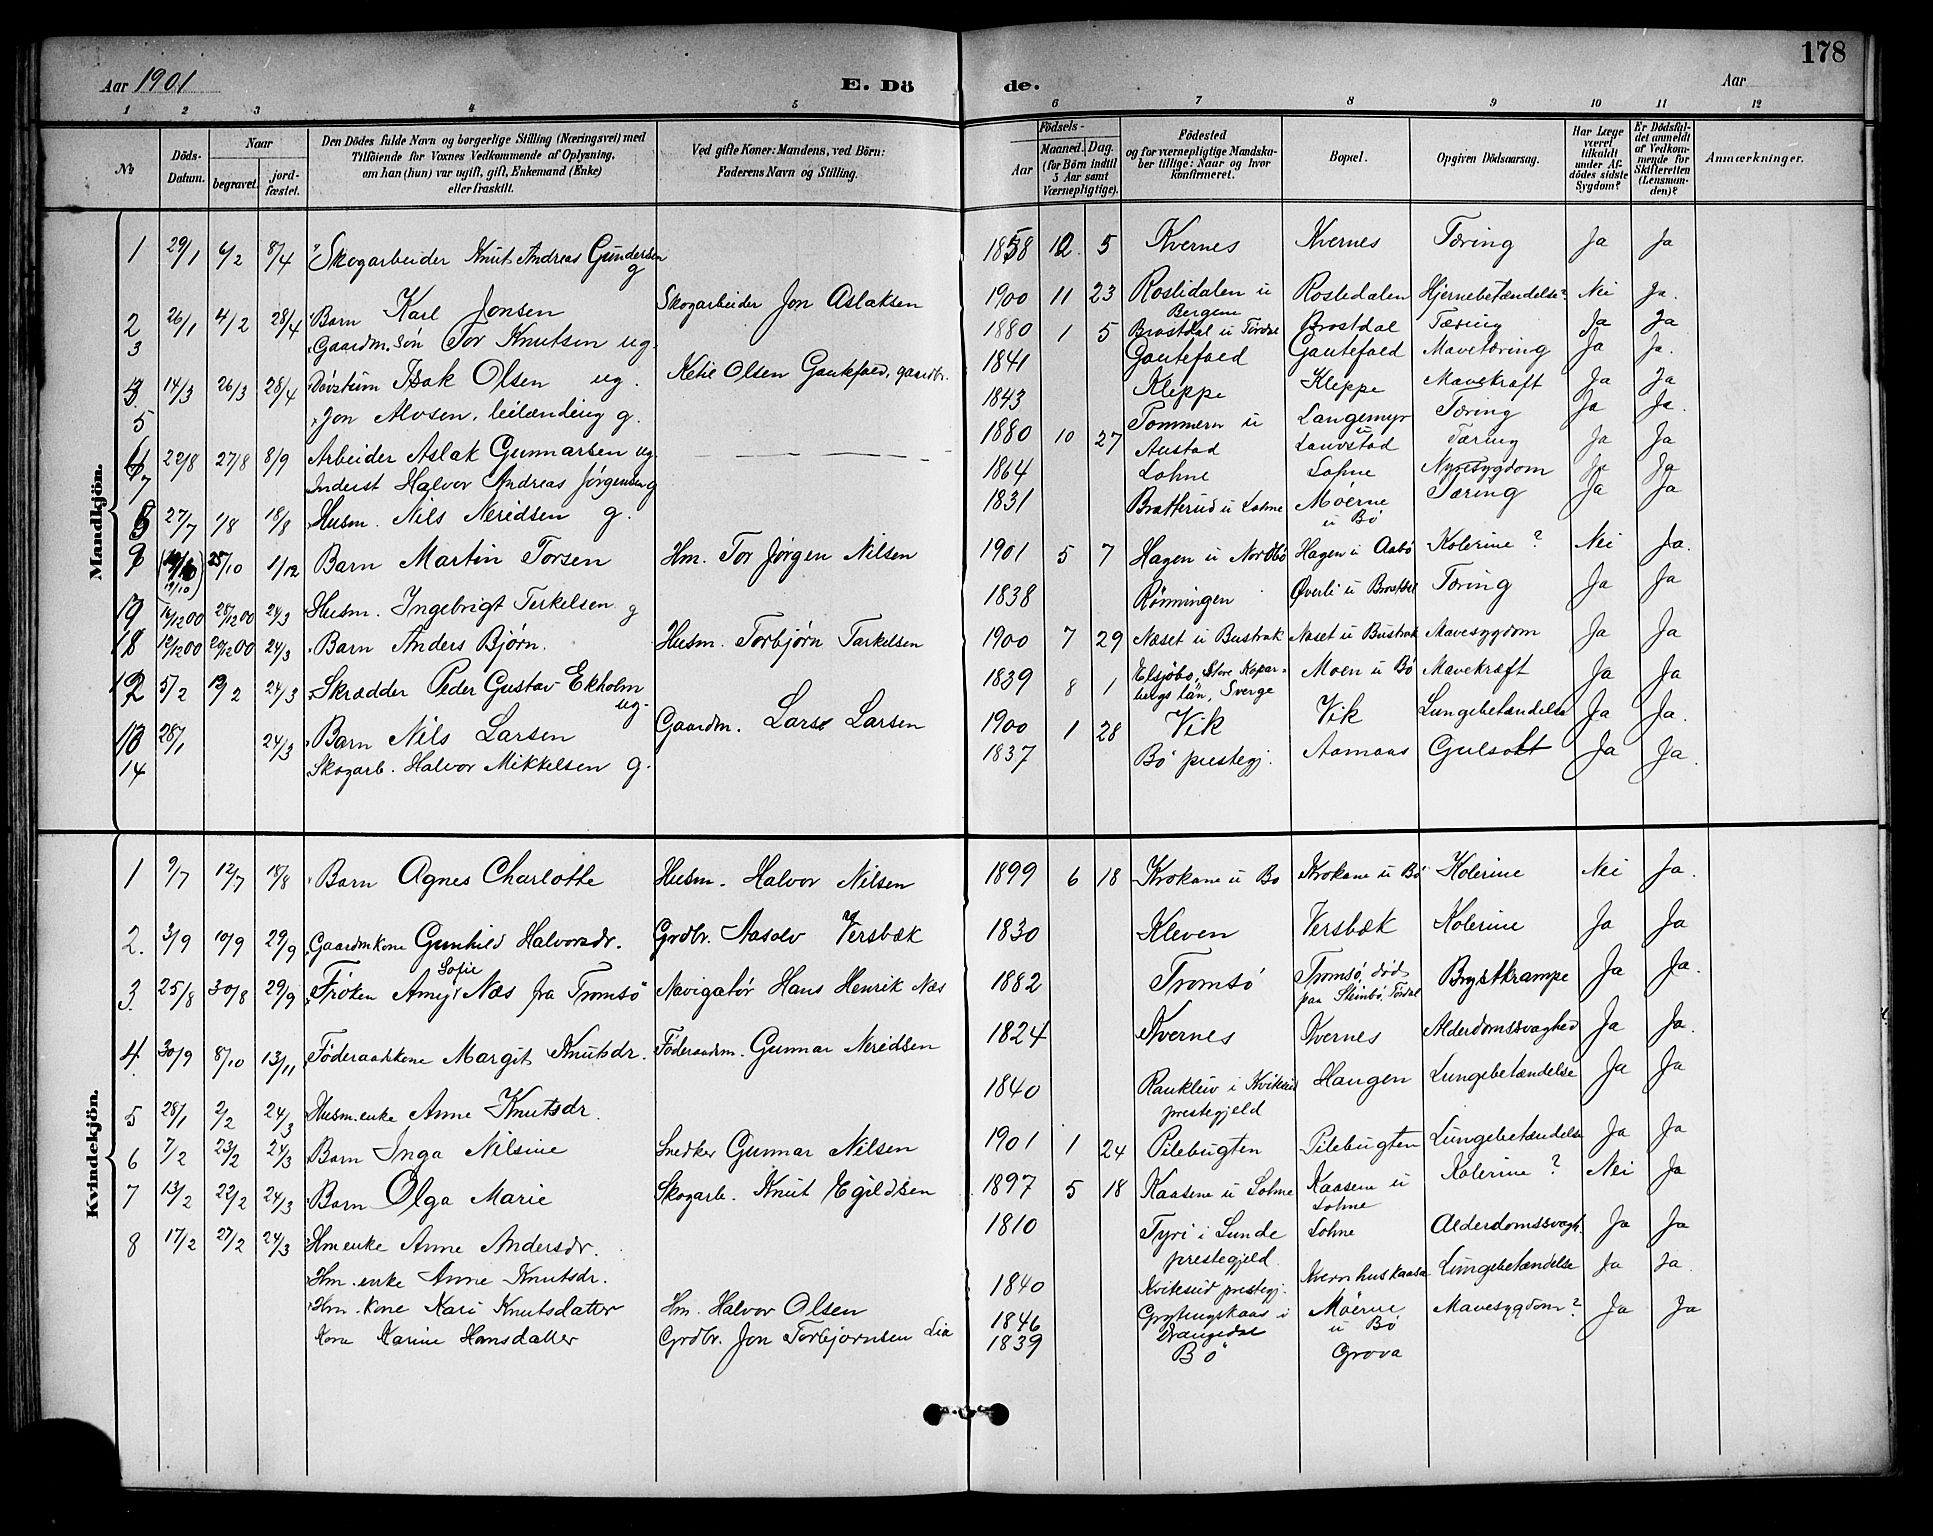 178
Aar 1901
E. Dö
de.
Aar
1 2 3 4 5 6 7 8 9 10 11 12
No
Döds-Datum.
Naar
begravet.
jord-fæstet.
Den Dödes fulde Navn og borgerlige Stilling (Næringsvei) med
Tilföiende for Voxnes Vedkommende af Oplysning,
om han (hun) var ugift, gift, Enkemand (Enke)
eller fraskilt.
Ved gifte Koner: Mandens, ved Börn:
Faderens Navn og Stilling.
Födsels-
Aar
Maaned. Dag.
(for Börn indtil
5 Aar samt
Værnepligtige).
Födested
og for værnepligtige Mandska-
ber tillige: Naar og hvor
konfirmeret.
Bopæl.
Opgiven Dödsaarsag.
Har Læge
været
tilkaldt
under Af-
dödes sidste
Sygdom?
Er Dödsfal-
det anmeldt
af Vedkom-
mende for
Skifteretten
(Lensman-
den)?
Anmærkninger.
Mandkjön.
1 29/1 6/2 8/4 Skogarbeider Knut Andreas Gundersen g 1858 12 5 Kvernes Kvernes Tæring Ja Ja
2 26/1 4/2 28/4 Barn Karl Jonsen Skogarbeider Jon Aslaksen 1900 11 23 Roslidalen u Bergene Roslidalen Hjernebetændelse? Nei Ja.
3 Gaardm. søn Tor Knutsen ug. 1880 1 5 Brostdal u Tørdal Brostdal Tæring Ja Ja
14/3 26/3 28/4 Døvstum Isak Olsen ug. Ketil Olsen Gautefald, gaardbr. 1841 Gautefald Gautefald Mavetæring Ja Ja.
5 Jon Alvsen, leilænding g. 1843 Kleppe Kleppe Mavekræft Ja Ja
6 22/8 27/8 8/9 Arbeider Aslak Gunnarsen ug. 1880 10 27 Tommern u Austad Langemyr u Landstad Tæring Ja Ja.
7 Inderst Halvor Andreas Jørgensen g 1864 Lohne Lohne Tæring Ja Ja
8 27/7 1/8 18/8 Husm. Nils Neridsen g. 1831 Bratterud u Lohne Moerne u Bø Nyresygdom Tæring Ja Ja
9 19/10 25/10 1/12 Barn Martin Torsen Hm. Tor Jørgen Nilsen 1901 5 7 Hagen u Nordbø Hagen i Aabø Kolerine? Nei Ja.
16/12 00 28/12 00 24/3 Husm. Ingebrigt Terkelsen g 1838 Rønningen Øverli u Brostdal Tæring Ja Ja
12/12 00 20/12 00 24/3 Barn Anders Bjørn. Husm. Torbjørn Tarkelsen 1900 7 29 Næset u Bustrak Næset u Bustrak Mavesygdom Ja Ja
12 5/2 13/2 24/3 Skrædder Peder Gustav Ekholm ug. 1839 8 1 Elsjøbo, Store Kopar-bergs län, Sverge Moen u Bø Mavekræft Ja Ja
13 28/1 24/3 Barn Nils Larsen Gaardm. Lars Larsen 1900 1 28 Vik Vik Lungebetændelse Ja Ja.
14 Skogarb. Halvor Mikkelsen g. 1837 Bø prestegj. Aamaas Gulsott Ja Ja.
Kvindekjön.
1 9/7 12/7 18/8 Barn Agnes Charlotte Husm. Halvor Nilsen 1899 6 18 Krokane u Bø Krokane u Bø Kolerine Nei Ja.
2. 3/9 10/9 29/9 Gaardmkone Gunhild Halvorsdr. Grdbr. Aasolv Versbæk 1830 Kleven Versbæk Kolerine Ja Ja
3. 25/8 30/8 29/9 Frøken Amy Sofie Næs fra Tromsø Navigatør Hans Henrik Næs 1882 Tromsø Tromsø, død paa Steinbø, Tørdal Brystkrampe Ja Ja.
4. 30/9 8/10 13/11 Føderaadskone Margit Knutsdr. Føderaadm. Gunnar Neridsen 1824 Kvernes Kvernes Alderdomssvaghed Ja Ja.
5 28/1 2/2 24/3 Husm.enke Anne Knutsdr. 1840 Rauklev i Kviteseid prestegjeld Haugen Lungebetændelse Ja Ja
6 7/2 23/2 24/3 Barn Inga Nilsine Snedker Gunnar Nilsen 1901 1 24 Pilebugten Pilebugten Lungebetændelse Ja Ja
7 13/2 22/2 24/3 Barn Olga Marie Skogarb. Knut Egildsen 1897 5 18 Kaasene u Lohne Kaasene u Lohne Kolerine? Nei Ja
8 17/2 27/2 24/3 Hmenke Anne Andersdr. 1810 Tyri i Lunde prestegjeld Lohne Alderdomssvagh. Ja Ja
Hm. enke Anne Knutsdr. 1840 Kviteseid prestegj. Kvernhuskaasa Lungebetændelse Ja Ja.
Hm. kone Kari Knutsdatter Hm. Halvor Olsen 1846 Grytingskaas i Drangedal Moerne u Bø Mavesygdom? Ja Ja
Kone Karine Hansdatter Grdbr. Jon Torbjørnsen Lia 1839 Bø Grova